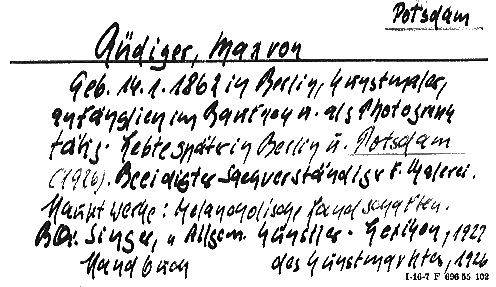 Potsdam
Rüdiger, Max von
Geb. 14.1.1862 in Berlin, Kunstmaler,
anfänglich im Bankfach u. als Photograph
tätig. Lebte später in Berlin u. Potsdam
(1926). Beeidigter Sachverständiger f. Malerei.
Hauptwerke: Melancholische Landschaften.
Singer, Allgem. Künstler-Lexikon, 1922
Handbuch des Kunstmarktes, 1926
I-16-7 F 696 55 102